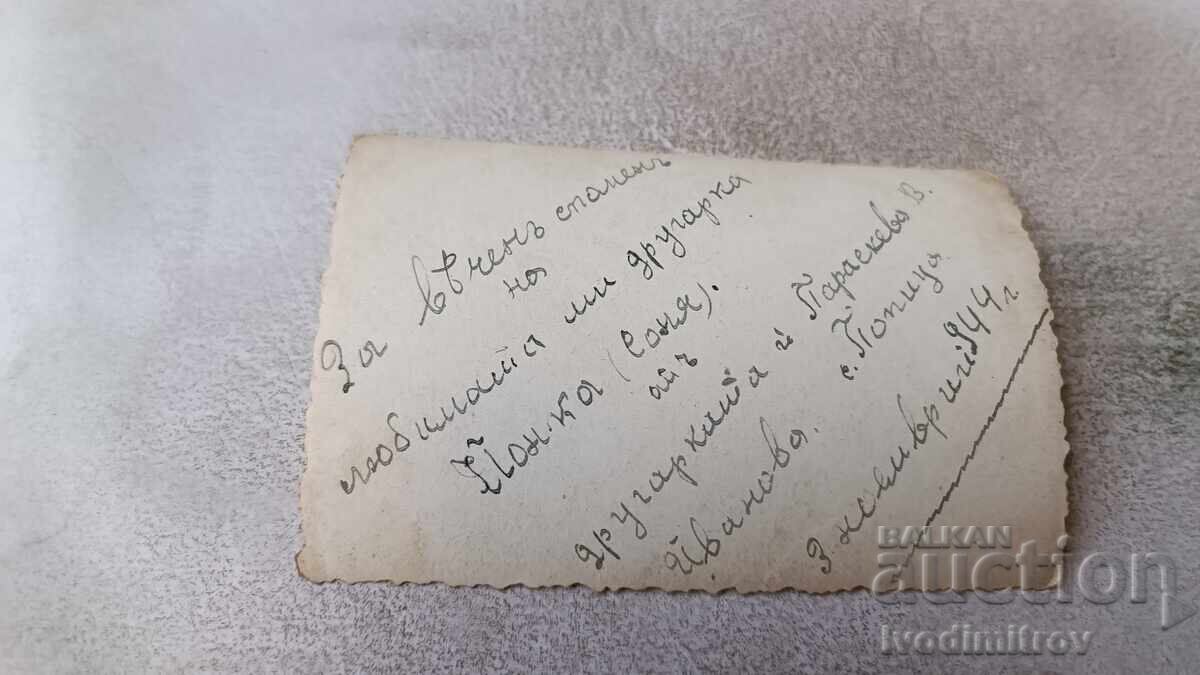 За вѣченъ спаменъ
на
любимата ми другарка
Йонка (Соня).
отъ
другарката ѝ Параскева В.
Иванова. с. Попица
3 ноемврий 944 г.
BALKAN
auction
Ivodimitrov